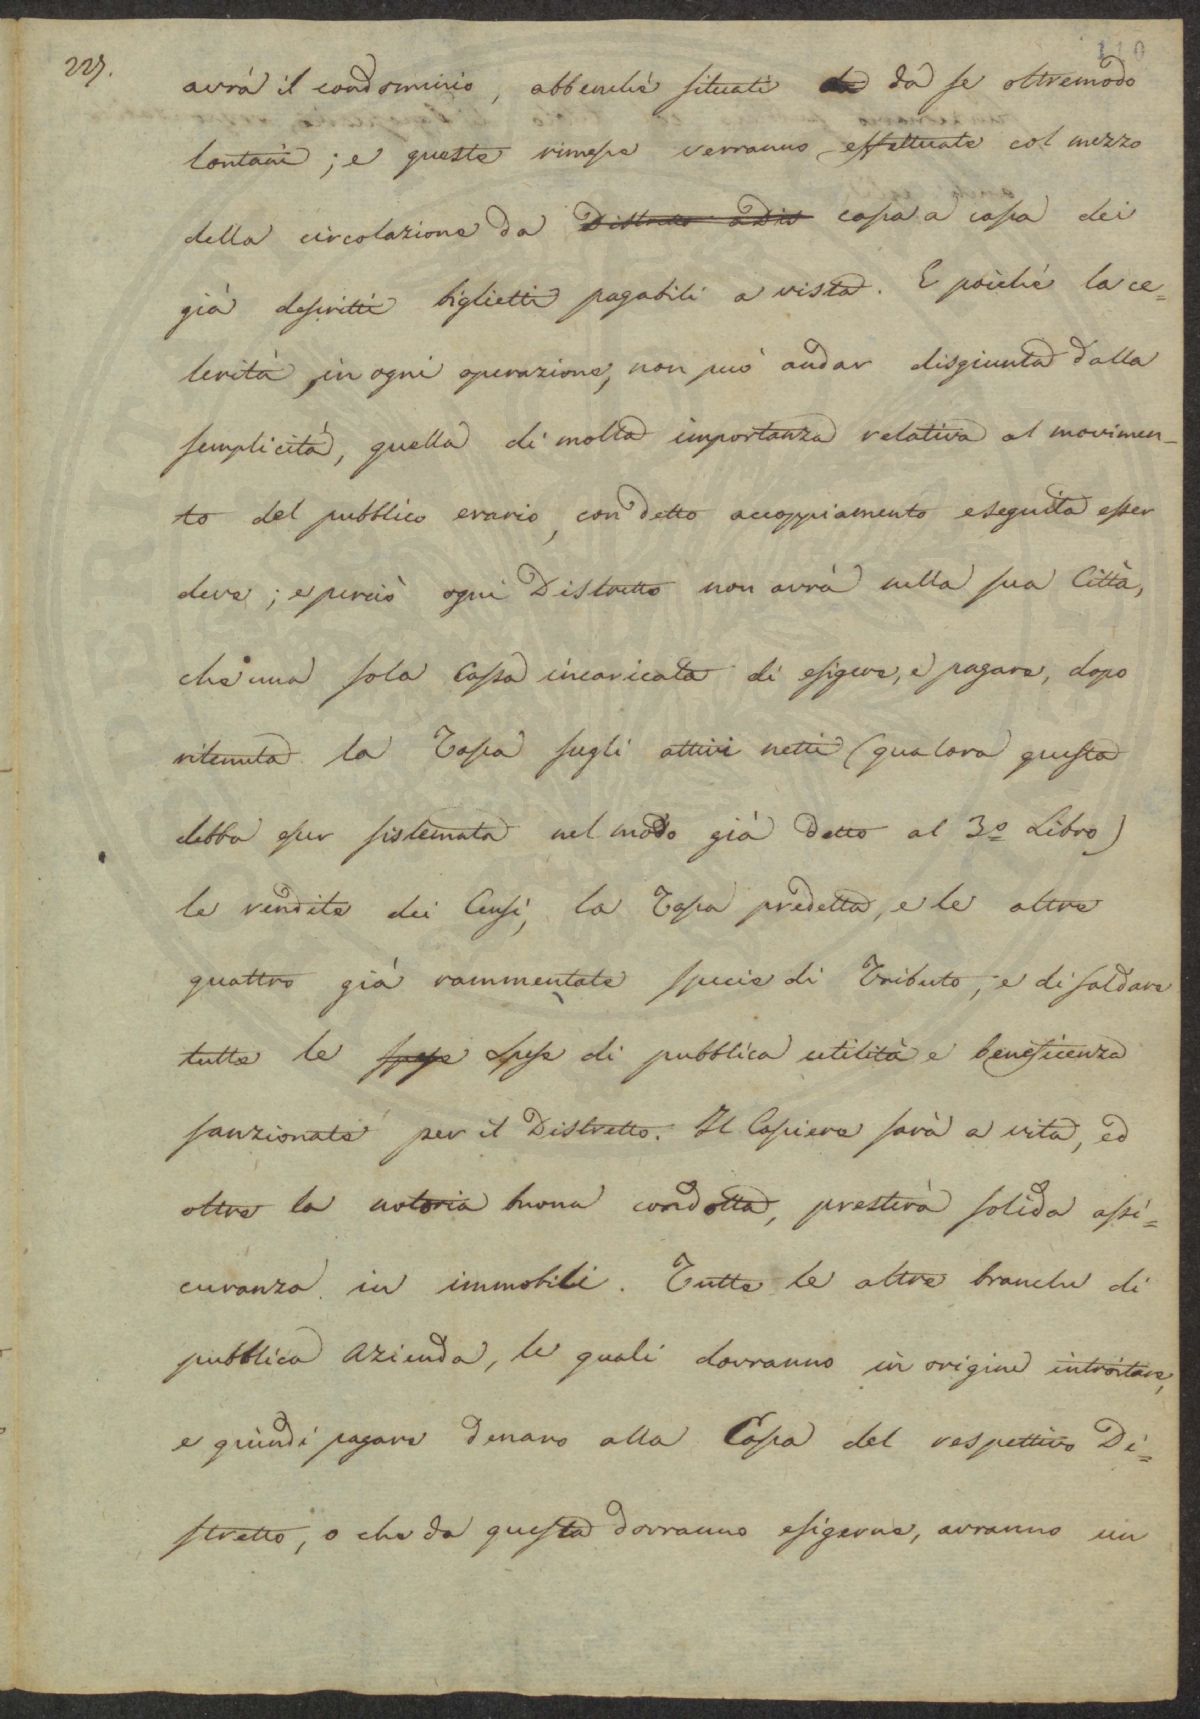 227.
110
avrà il condominio, abbenchè situati da se oltremodo
lontani; e queste rimesse verranno effettuate col mezzo
della circolazione da Distretto a Dis cassa a cassa dei
già descritti biglietti pagabili a vista. E poichè la ce=
lerità, in ogni operazione, non può andar disgiunta dalla
semplicità, quella di molta importanza relativa al movimen-
to del pubblico erario, con detto accoppiamento eseguita esser
deve; e perciò ogni Distretto non avrà nella sua Città,
che una sola Cassa incaricata di esigere, e pagare, dopo
ritenuta la Tassa sugli attivi netti (qualora questa
debba esser sistemata nel modo già detto al 3º Libro)
le rendite dei Censi, la Tassa predetta, e le altre
quattro già rammentate specie di Tributo; e di saldare
tutte le spese Spese di pubblica utilità e beneficenza
sanzionate per il Distretto. Il Cassiere sarà a vita, ed
oltre la notoria buona condotta, presterà solida assi=
curanza in immobili. Tutte le altre branche di
pubblica Azienda, le quali dovranno in origine introitare,
e quindi pagare denaro alla Cassa del respettivo Di=
stretto, o che da questa dovranno esigerne, avranno un